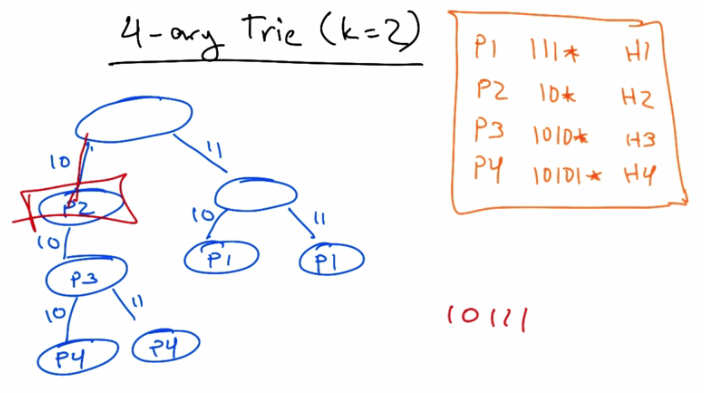 4-ary Trie (k=2)
P1 111* H1
P2 10* H2
P3 1010* H3
P4 10101* H4
10
11
P2
10
10
11
P3
P1
P1
10
11
P4
P4
10111